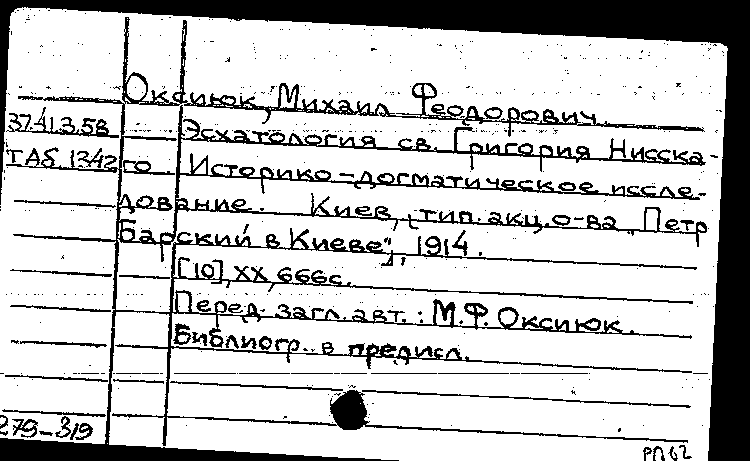 Оксиюк, Михаил Феодорович.
37.41.3.58 Эсхатология св. Григория Нисска-
ТАБ. 1342 го Историко-догматическое иссле-
дование. Киев, тип. акц. о-ва „Петр
Барский в Киеве", 1914.
[10], XX, 666с.
Перед загл. авт.: М.Ф. Оксиюк.
Библиогр. в предисл.
279-319
РП62